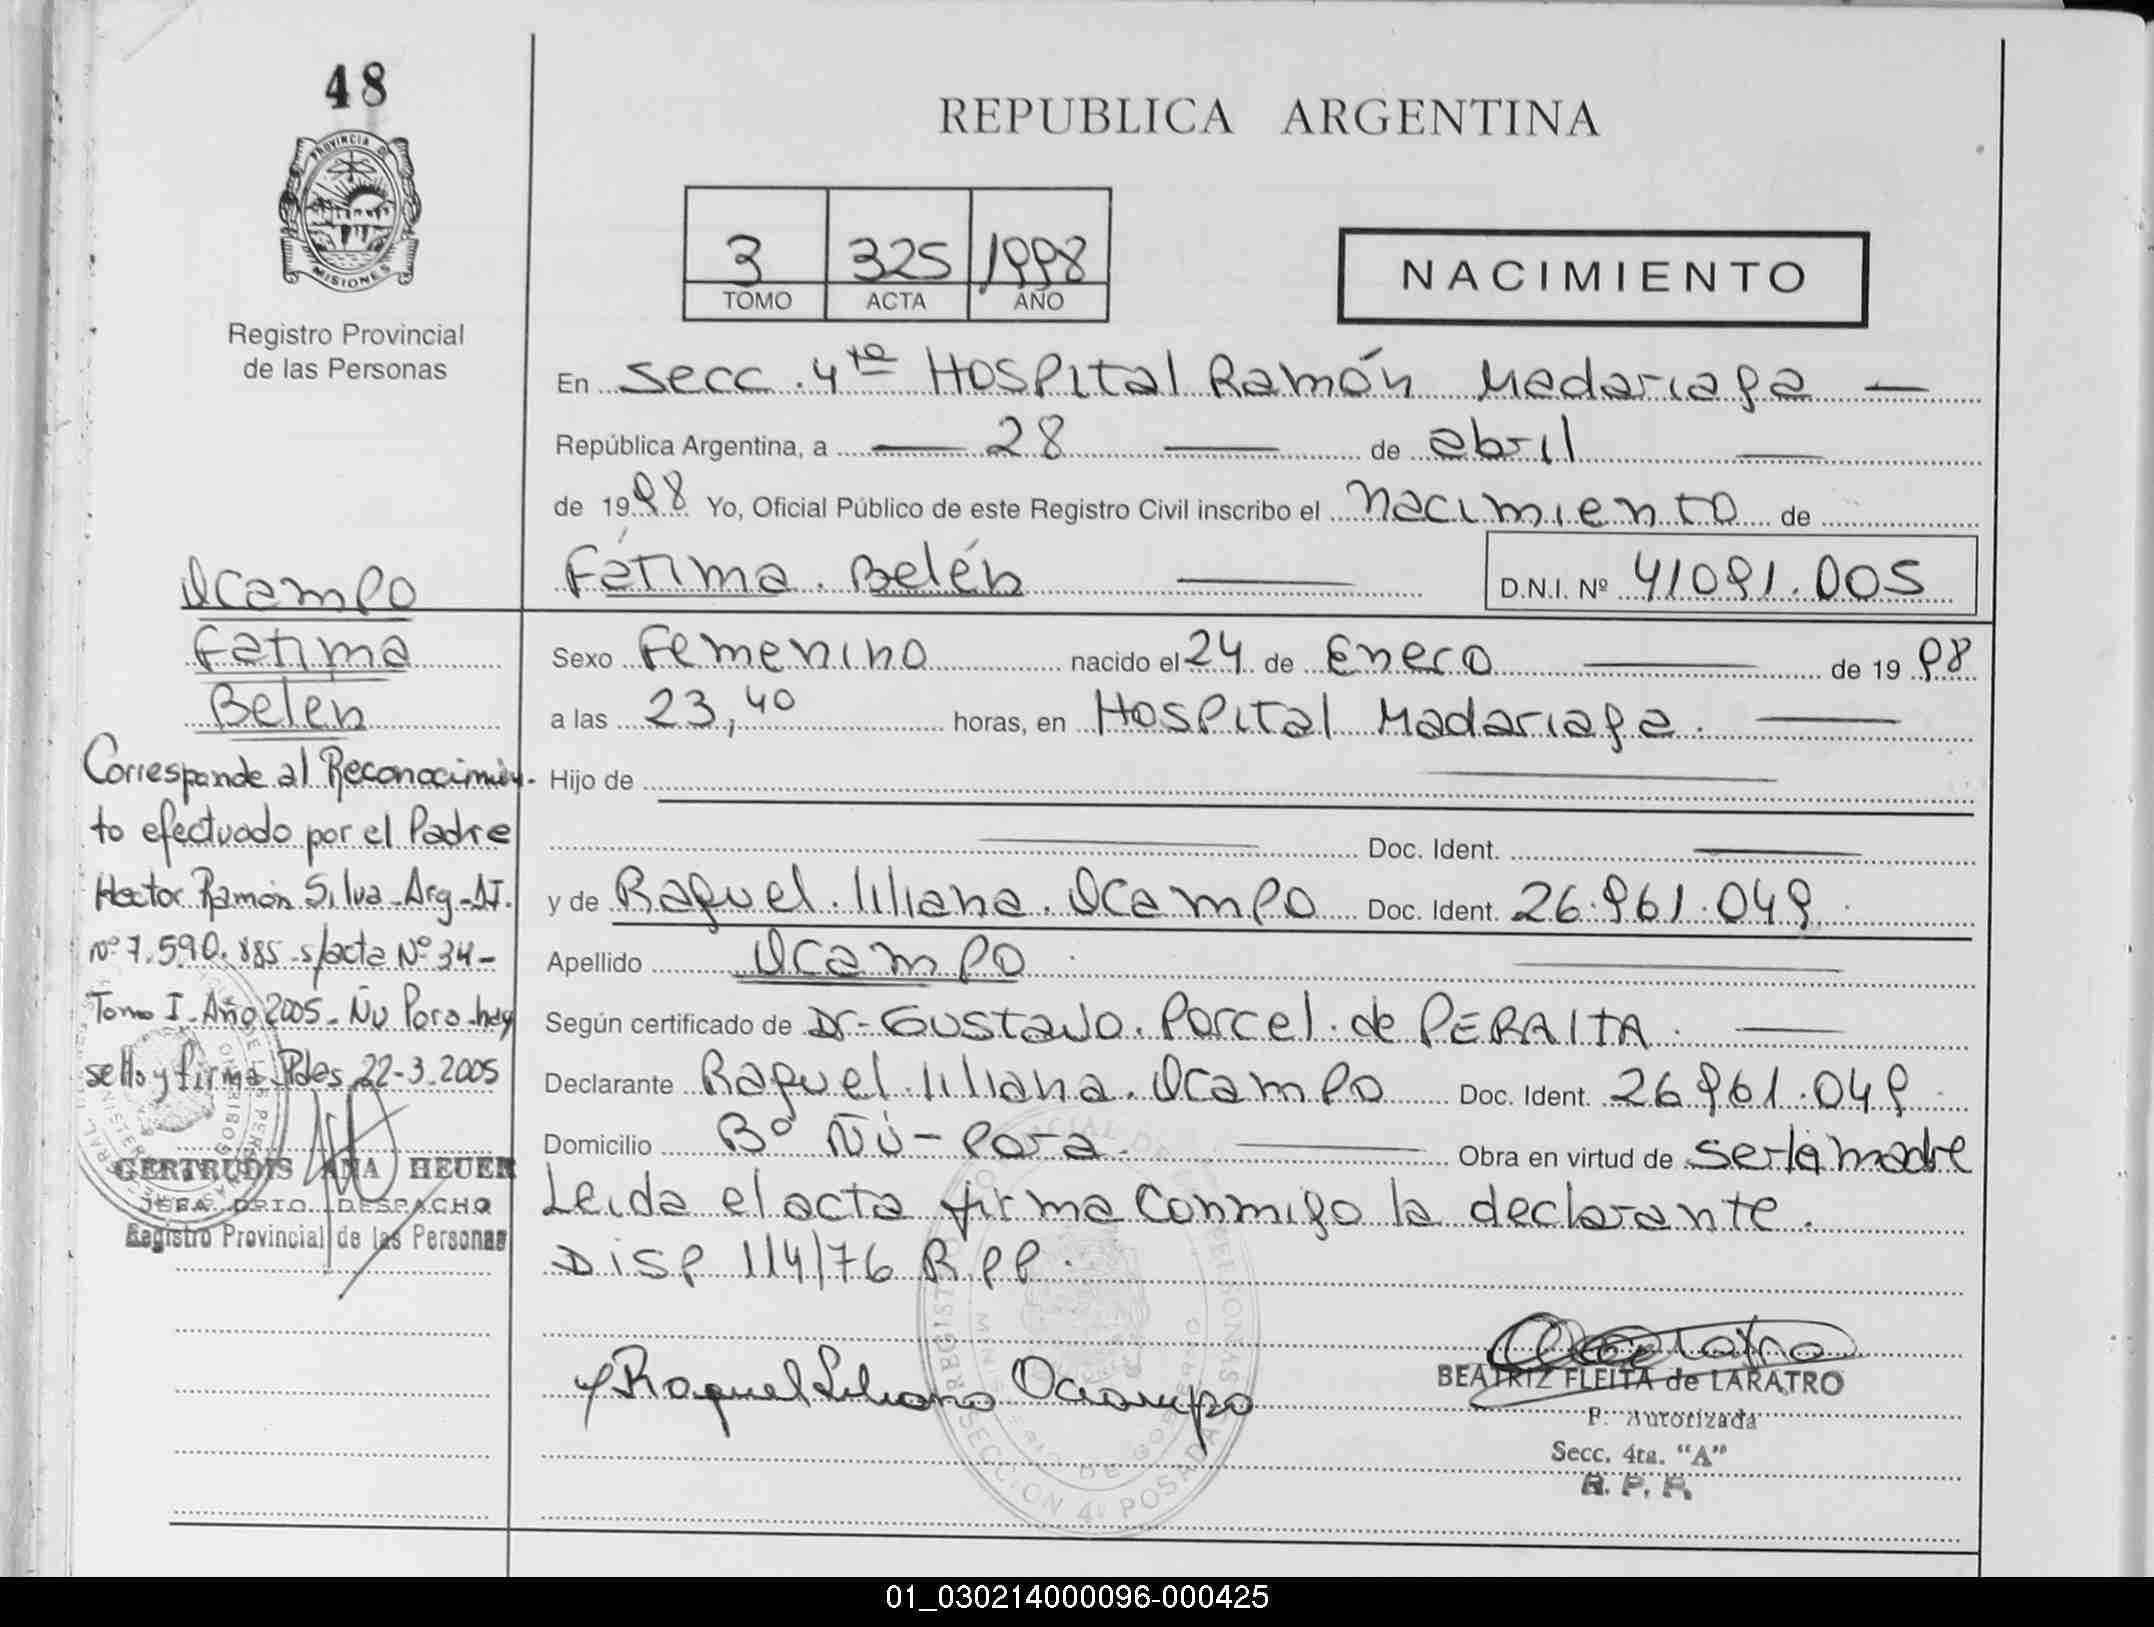 48
REPUBLICA ARGENTINA
PROVINCIA DE
MISIONES
3 325 1998
TOMO ACTA AÑO
NACIMIENTO
Registro Provincial
de las Personas
En Secc. 4ta Hospital Ramón Madariaga
República Argentina, a 28 de abril
de 1998 Yo, Oficial Público de este Registro Civil inscribo el nacimiento de
Fátima. Belén D.N.I. Nº 41091.005
Ocampo
Fatima
Belen
Sexo Femenino nacido el 24 de Enero de 1998
a las 23,40 horas, en Hospital Madariaga.
Hijo de
Doc. Ident.
y de Raquel. liliana. Ocampo Doc. Ident. 26.961.049
Apellido Ocampo
Según certificado de Dr- Gustavo. Porcel. de PERALTA.
Declarante Raquel. liliana. Ocampo Doc. Ident. 26961.049
Domicilio Bº Ñú-Pora. Obra en virtud de ser la madre
Leida el acta firma conmigo la declarante.
DISP 114/76 R.P.P.
Corresponde al Reconocimien-
to efectuado por el Padre
Hector Ramón Silva-Arg-DI.
Nº 7.590.885 s/acta Nº 34-
Tomo I-Año 2005- Ñu Pora-hay
sello y firma Pdes 22-3-2005
GERTRUDIS ANA HEUER
JEFA DPTO. DESPACHO
Registro Provincial de las Personas
Raquel Liliana Ocampo
BEATRIZ FLEITA de LARATRO
P. Autorizada
Secc. 4ta. "A"
R. P. P.
SECCION 4ª POSADAS
01_030214000096-000425